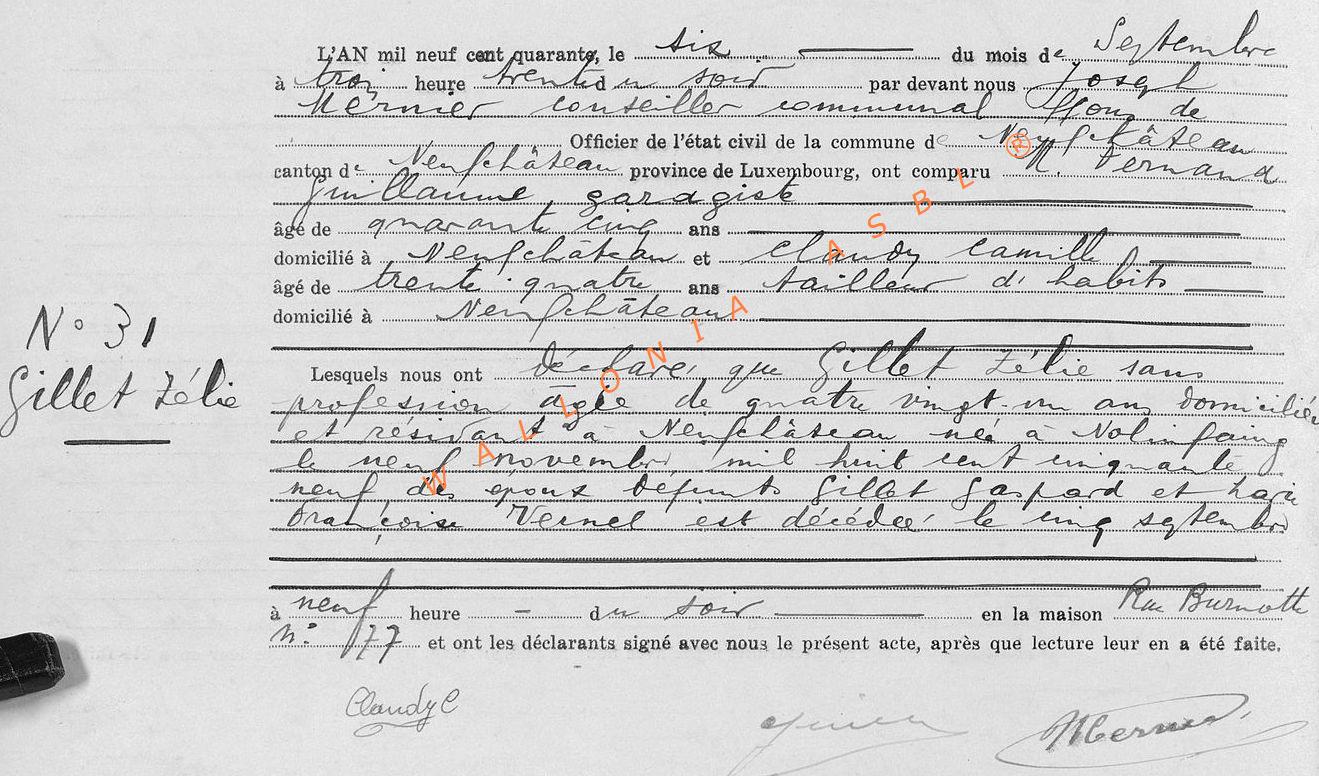 L'AN mil neuf cent quarante, le six du mois de Septembre
à trois heure trente du soir par devant nous Joseph
Mernier conseiller communal ffons de
Officier de l'état civil de la commune de Neufchâteau
canton de Neufchâteau province de Luxembourg, ont comparu M. Fernand
Guillaume, garagiste
âgé de quarante cinq ans
domicilié à Neufchâteau et Claudy Camille
âgé de trente quatre ans tailleur d'habits
domicilié à Neufchâteau
N° 31
Gillet Zélie
Lesquels nous ont déclaré, que Gillet Zélie sans
profession âgée de quatre vingt-un ans domiciliée
et résidant à Neufchâteau née à Nolinfaing
le neuf novembre mil huit cent cinquante
neuf, des époux défunts Gillet Gaspard et Marie
Françoise Vernel est décédée le cinq septembre
à neuf heure - du soir en la maison Rue Burnotte
N° 177 et ont les déclarants signé avec nous le présent acte, après que lecture leur en a été faite.
Claudy C
JMernier
WALLONIA ASBL ®